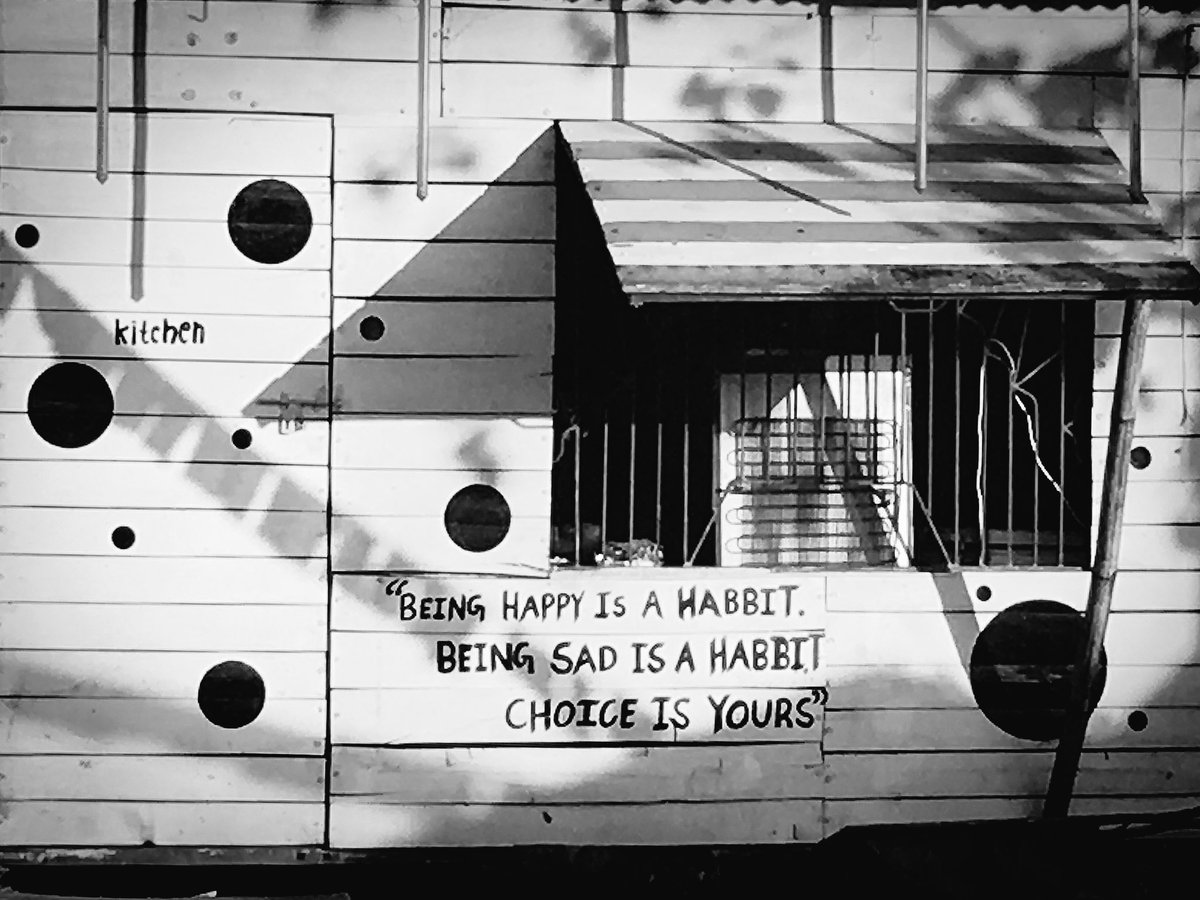 kitchen
“BEING HAPPY IS A HABBIT.
BEING SAD IS A HABBIT
CHOICE IS YOURS”